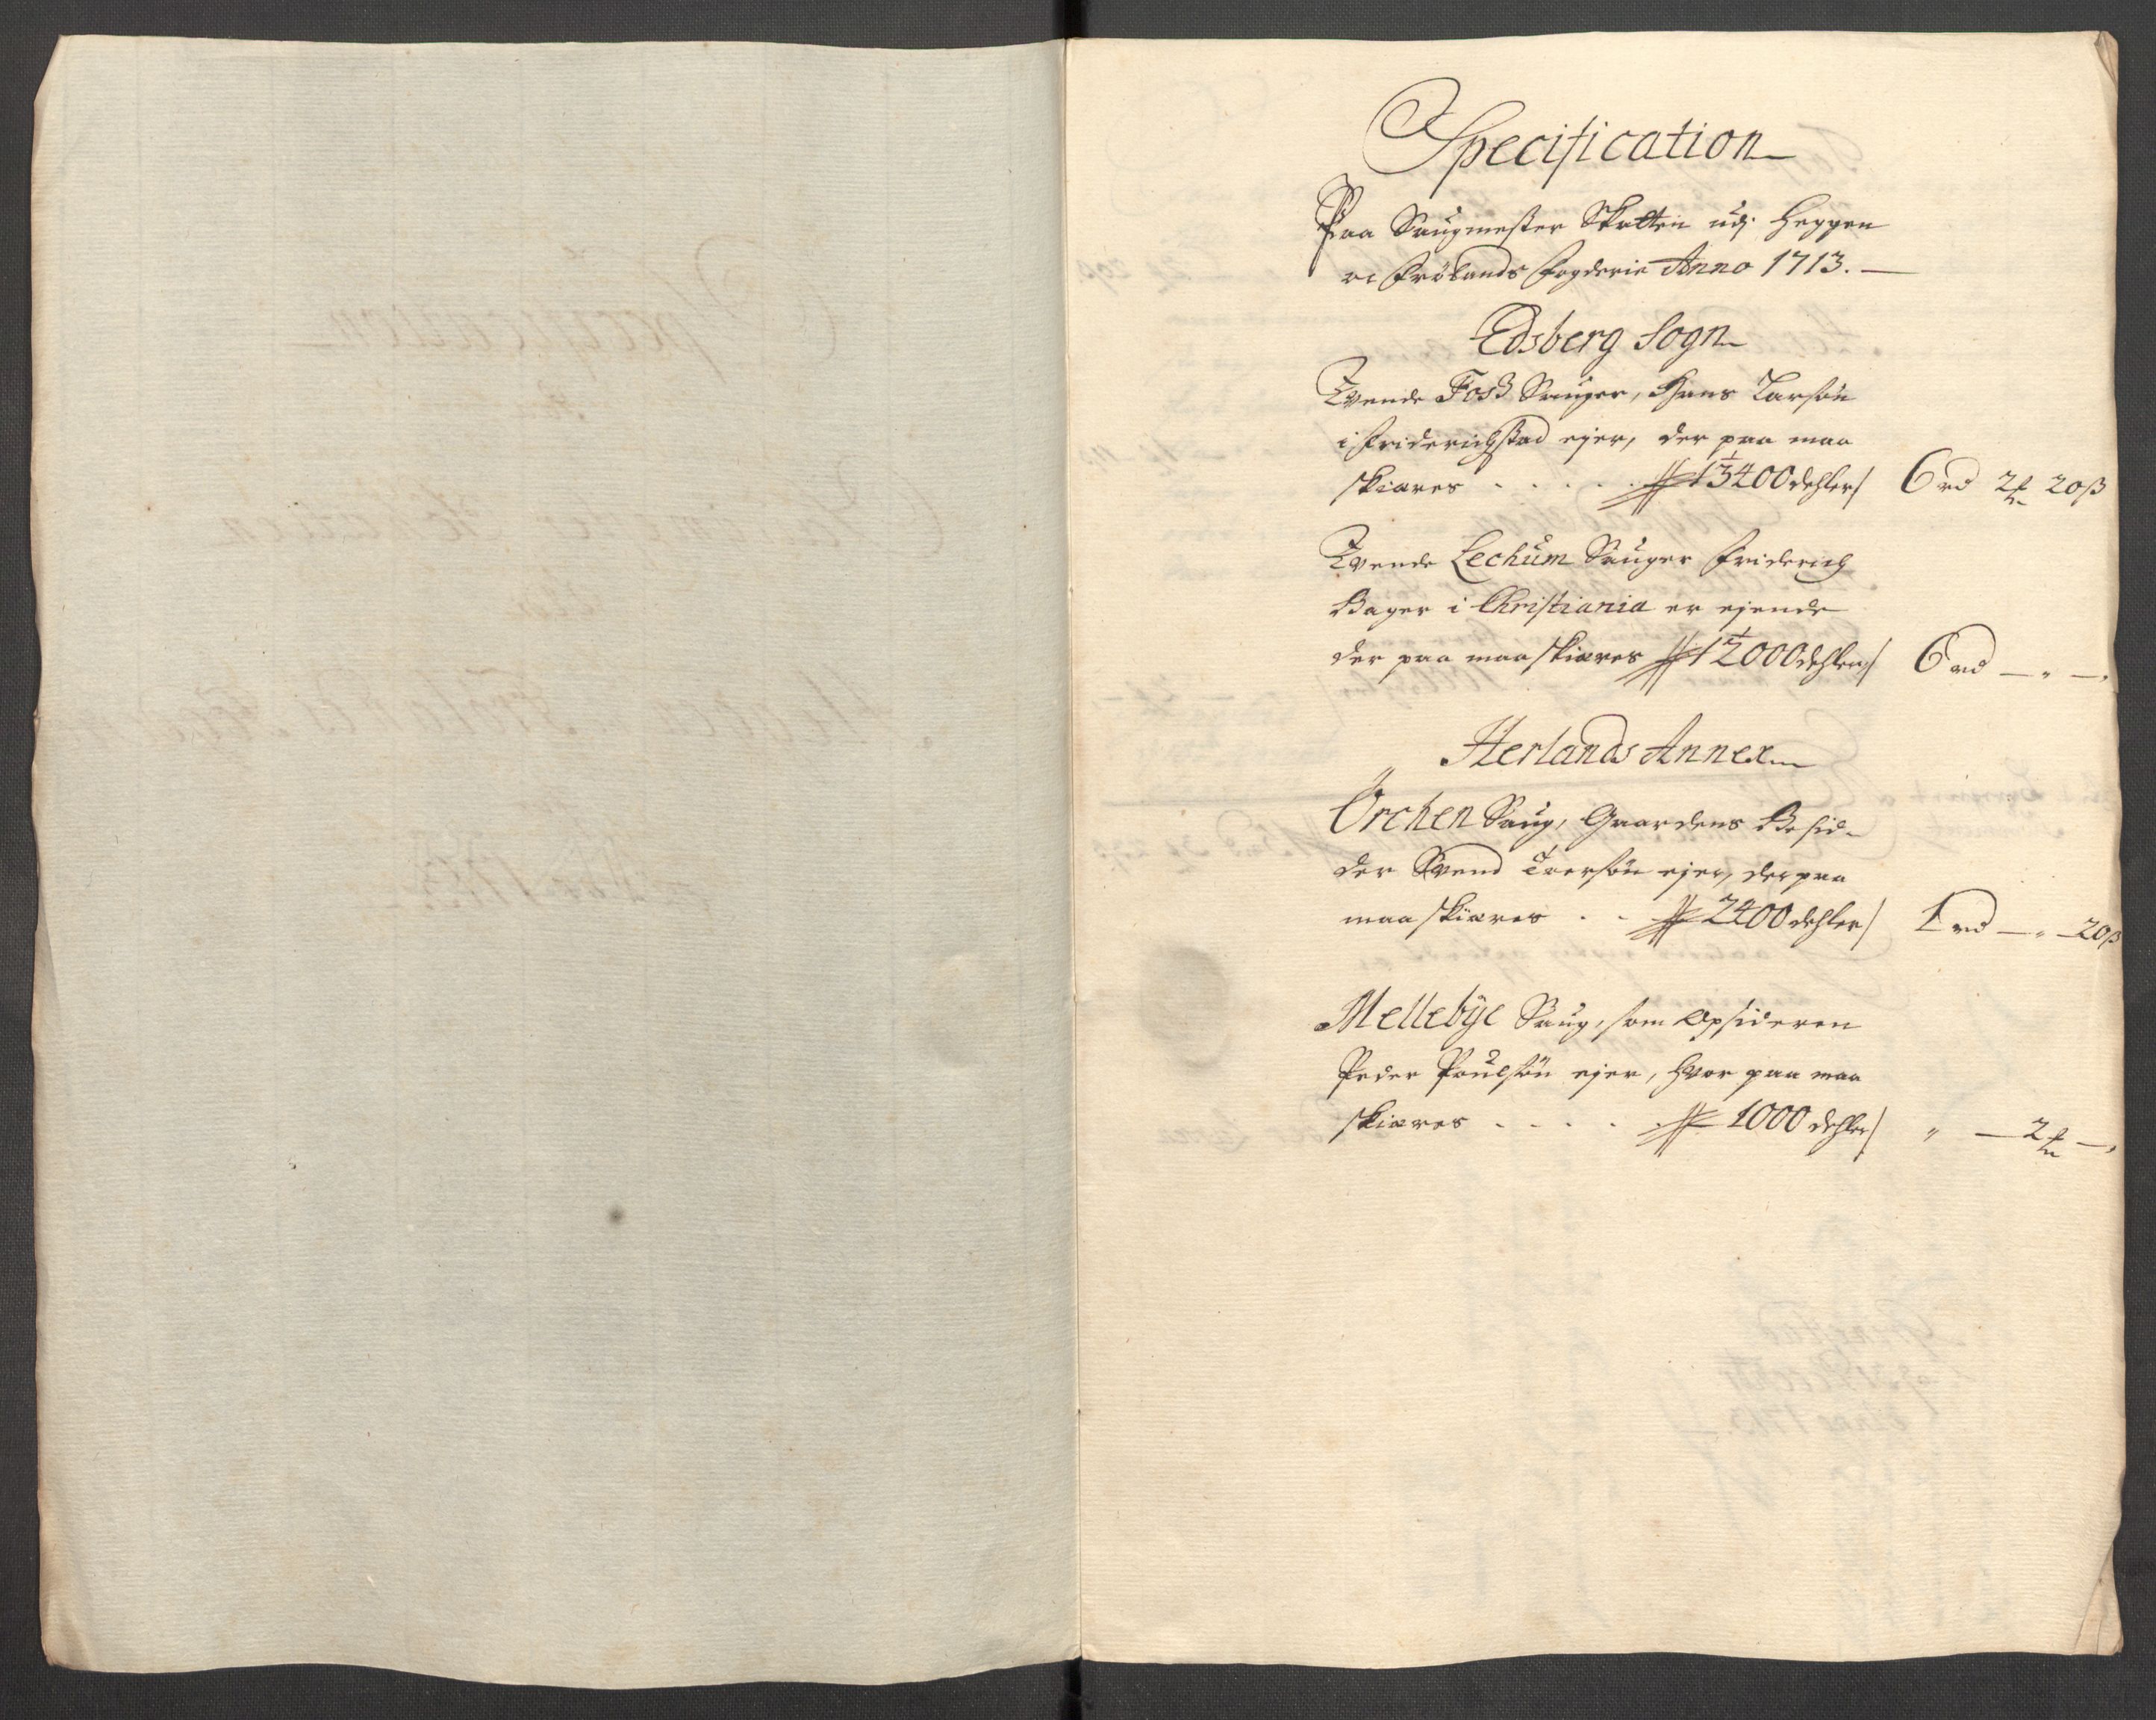 Specification
Paa Saugmester Skatten udj Heggen
oc Frölands Fogderie Anno 1713.
Edsberg Sogn
Tvende Foss Sauger, Hans Larsön
i Friderichstad ejer, der paa maa
skiæres . . . . . 13400 dehler / 6 rd 2 ₰ 20 β
Tvende Lechum Sauger Friderich
Bager i Christiania er ejende
der paa maa skiæres 12000 dehler / 6 rd — „ —„
Herlands Annex
Örchen Saug, Gaardens Besid-
der Svend Iversön ejer, der paa
maa skiæres . . 2400 dehler / 1 rd — „ — 20 β
Mellebye Saug, som Opsideren
Peder Poulsön ejer, hvor paa maa
skiæres . . . . . 1000 dehler / „ — 2 ₰ —„